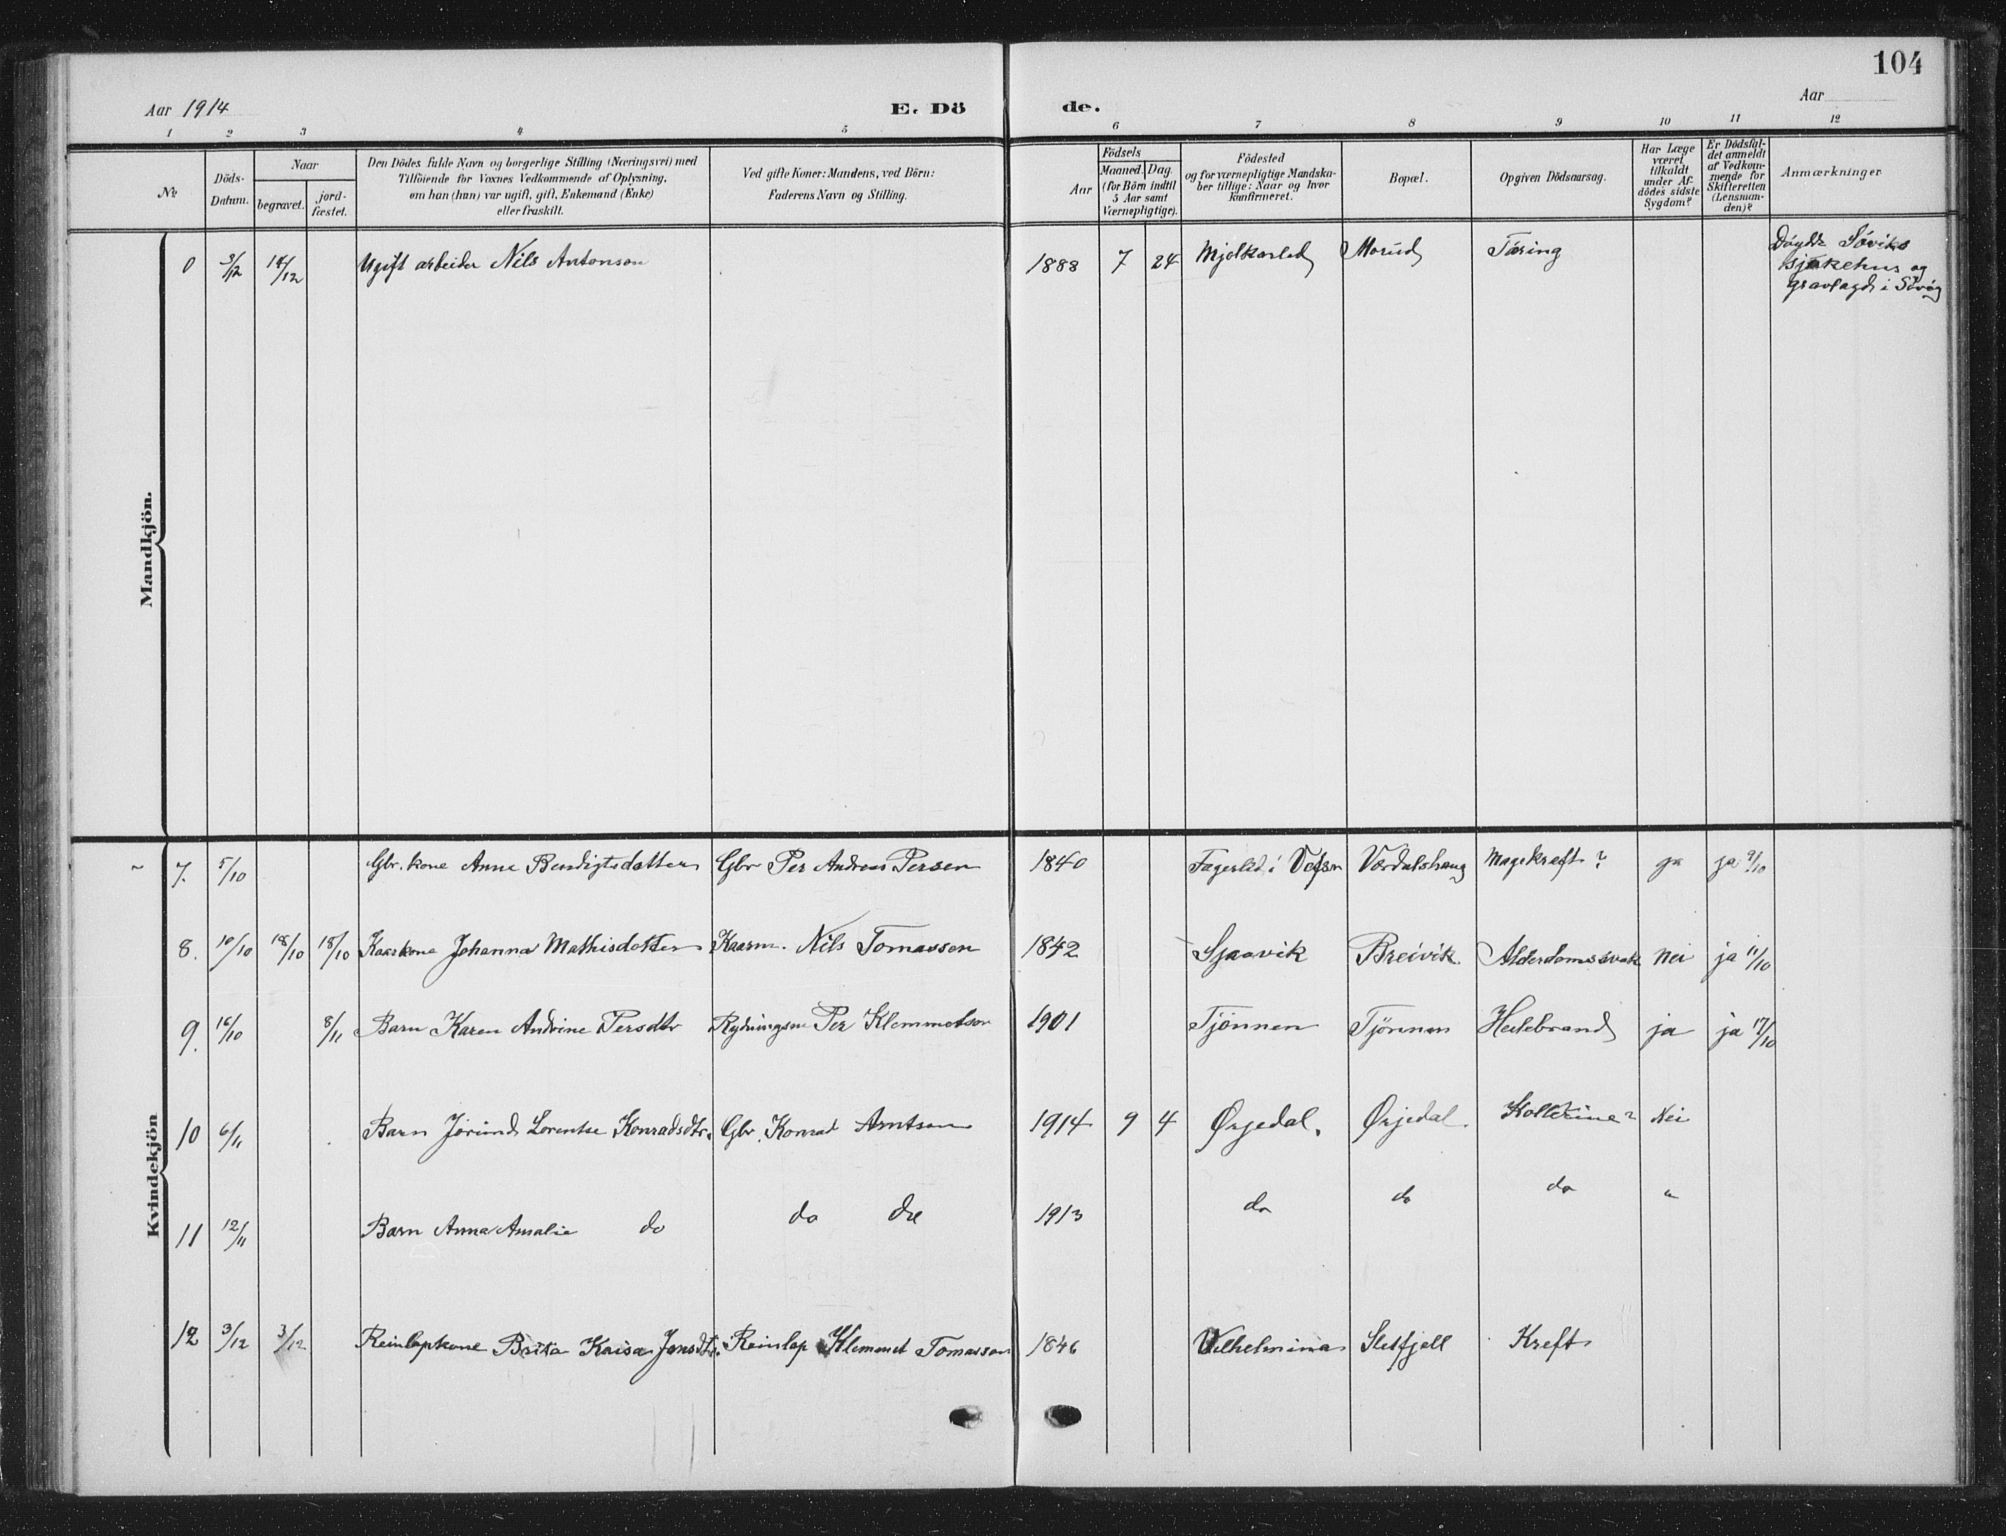 104
Aar 1914 E. Dö de. Aar
1 2 3 4 5 6 7 8 9 10 11 12
No
Döds-Datum.
Naar
begravet.
jord-fæstet.
Den Dödes fulde Navn og borgerlige Stilling (Næringsvei) med
Tilföiende for Voxnes Vedkommende af Oplysning,
om han (hun) var ugift, gift, Enkemand (Enke)
eller fraskilt.
Ved gifte Koner: Mandens, ved Börn:
Faderens Navn og Stilling.
Födsels
Aar
Maaned. Dag.
(for Börn indtil
5 Aar samt
Værnepligtige).
Födested
og for værnepligtige Mandska-
ber tillige: Naar og hvor
konfirmeret.
Bopæl.
Opgiven Dödsaarsag.
Har Læge
været
tilkaldt
under Af-
dödes sidste
Sygdom?
Er Dödsfal-
det anmeldt
af Vedkom-
mende for
Skifteretten
(Lensman-
den)?
Anmærkninger
Mandkjön.
0 3/12 18/12 Ugift arbeider Nils Antonson 1888 7 24 Mjölkarlid Morud Tæring
Döydde Söviks
sjukehus og
gravlagdt i
Kvindekjön
7. 5/10 Gbr. kone Anne Bendigtsdatter Gbr Per Andreas Persen 1840 Fagerlid i Vefsn Værdalshaug Magekræft? ja ja 9/10
8. 10/10 18/10 18/10 Kaarkone Johanna Mathisdatter Kaarm. Nils Tomassen 1842 Sjaavik Breivik Alderdomssvak Nei ja 11/10
9. 16/10 8/11 Barn Karen Andrine Persdtr Rydningsm Per Klemmetson 1901 Tjönnen Tjönnen ja ja 17/10
10 6/11 Barn Jörund Lorentse Konradsdtr. Gbr. Konrad Arntsen 1914 9 4 Örjedal. Örjedal. Nei
11 12/11 Barn Anna Amalie do do do 1913 do do do "
12 3/12 3/12 Reinlapkone Brita Kaisa Jonsdtr. Reinlap Klemmet Tomasson 1846 Vilhelmina Sletfjell Kreft